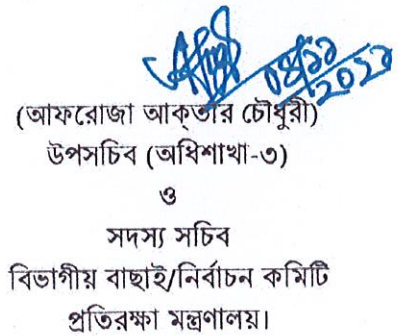 ০৪/১১
২০২১
(আফরোজা আক্তার চৌধুরী)
উপসচিব (অধিশাখা-৩)
ও
সদস্য সচিব
বিভাগীয় বাছাই/নির্বাচন কমিটি
প্রতিরক্ষা মন্ত্রণালয়।